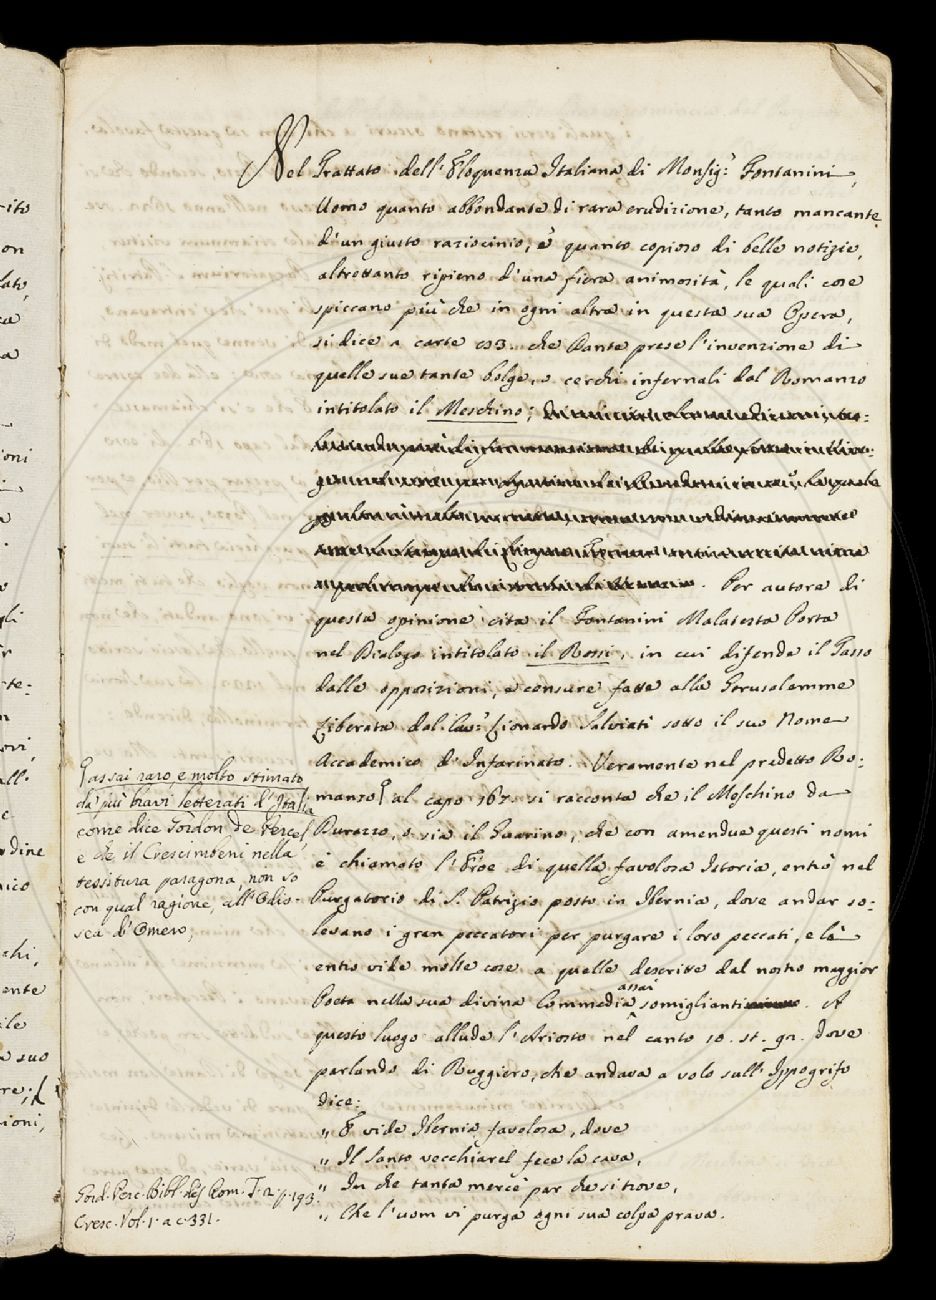 Nel Trattato dell'Eloquenza Italiana di Monsig.r Fontanini,
Uomo quanto abbondante di rara erudizione, tanto mancante
d'un giusto raziocinio, e quanto copioso di belle notizie,
altrettanto ripieno d'una fiera animosità, le quali cose
spiccano più che in ogni altra in questa sua Opera,
si dice a carte che Dante prese l'invenzione di
quelle sue tante bolge, o cerchi infernali dal Romanzo
intitolato il Meschino;
. Per autore di
questa opinione cita il Fontanini Malatesta Porta
nel Dialogo intitolato il Rossi, in cui difende il Tasso
dalle opposizioni, e censure fatte alla Gerusalemme
Liberata dal Cav.r Lionardo Salviati sotto il suo Nome
Accademico d'Infarinato. Veramente nel predetto Ro:
manzo al capo 167. si racconta che il Meschino da
Durazzo, o sia il Guerino, che con amendue questi nomi
è chiamato l'Eroe di quella favolosa Istoria, entrò nel
Purgatorio di S. Patrizio posto in Ibernia, dove andar so:
levano i gran peccatori per purgare i loro peccati, e là
entro vide molte cose a quelle descritte dal nostro maggior
Poeta nella sua divina Commedia assai somiglianti. A
questo luogo allude l'Ariosto nel canto 10. st. 92. dove
parlando di Ruggiero, che andava a volo sull'Ippogrifo
dice:
„ E vide Ibernia favolosa, dove
„ Il santo vecchiarel fece la cava,
„ In che tanta mercè par che si trove,
„ Che l'uom vi purga ogni sua colpa prava.
assai raro, e molto stimato
da più bravi letterati d'Italia
come dice Gordon de Percel,
e che il Crescimbeni nella
tessitura paragona, non so
con qual ragione, all'Odis-
sea d'Omero,
Gord. Perc. Bibl. des Rom. T. 2. p. 193.
Cresc. Vol. 1. a c. 331.